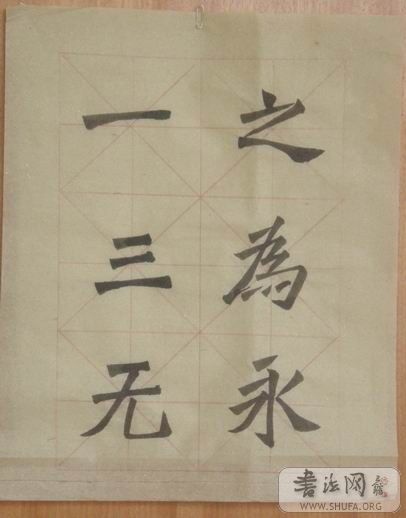 之為永
一三无
书法网
WWW.SHUFA.ORG